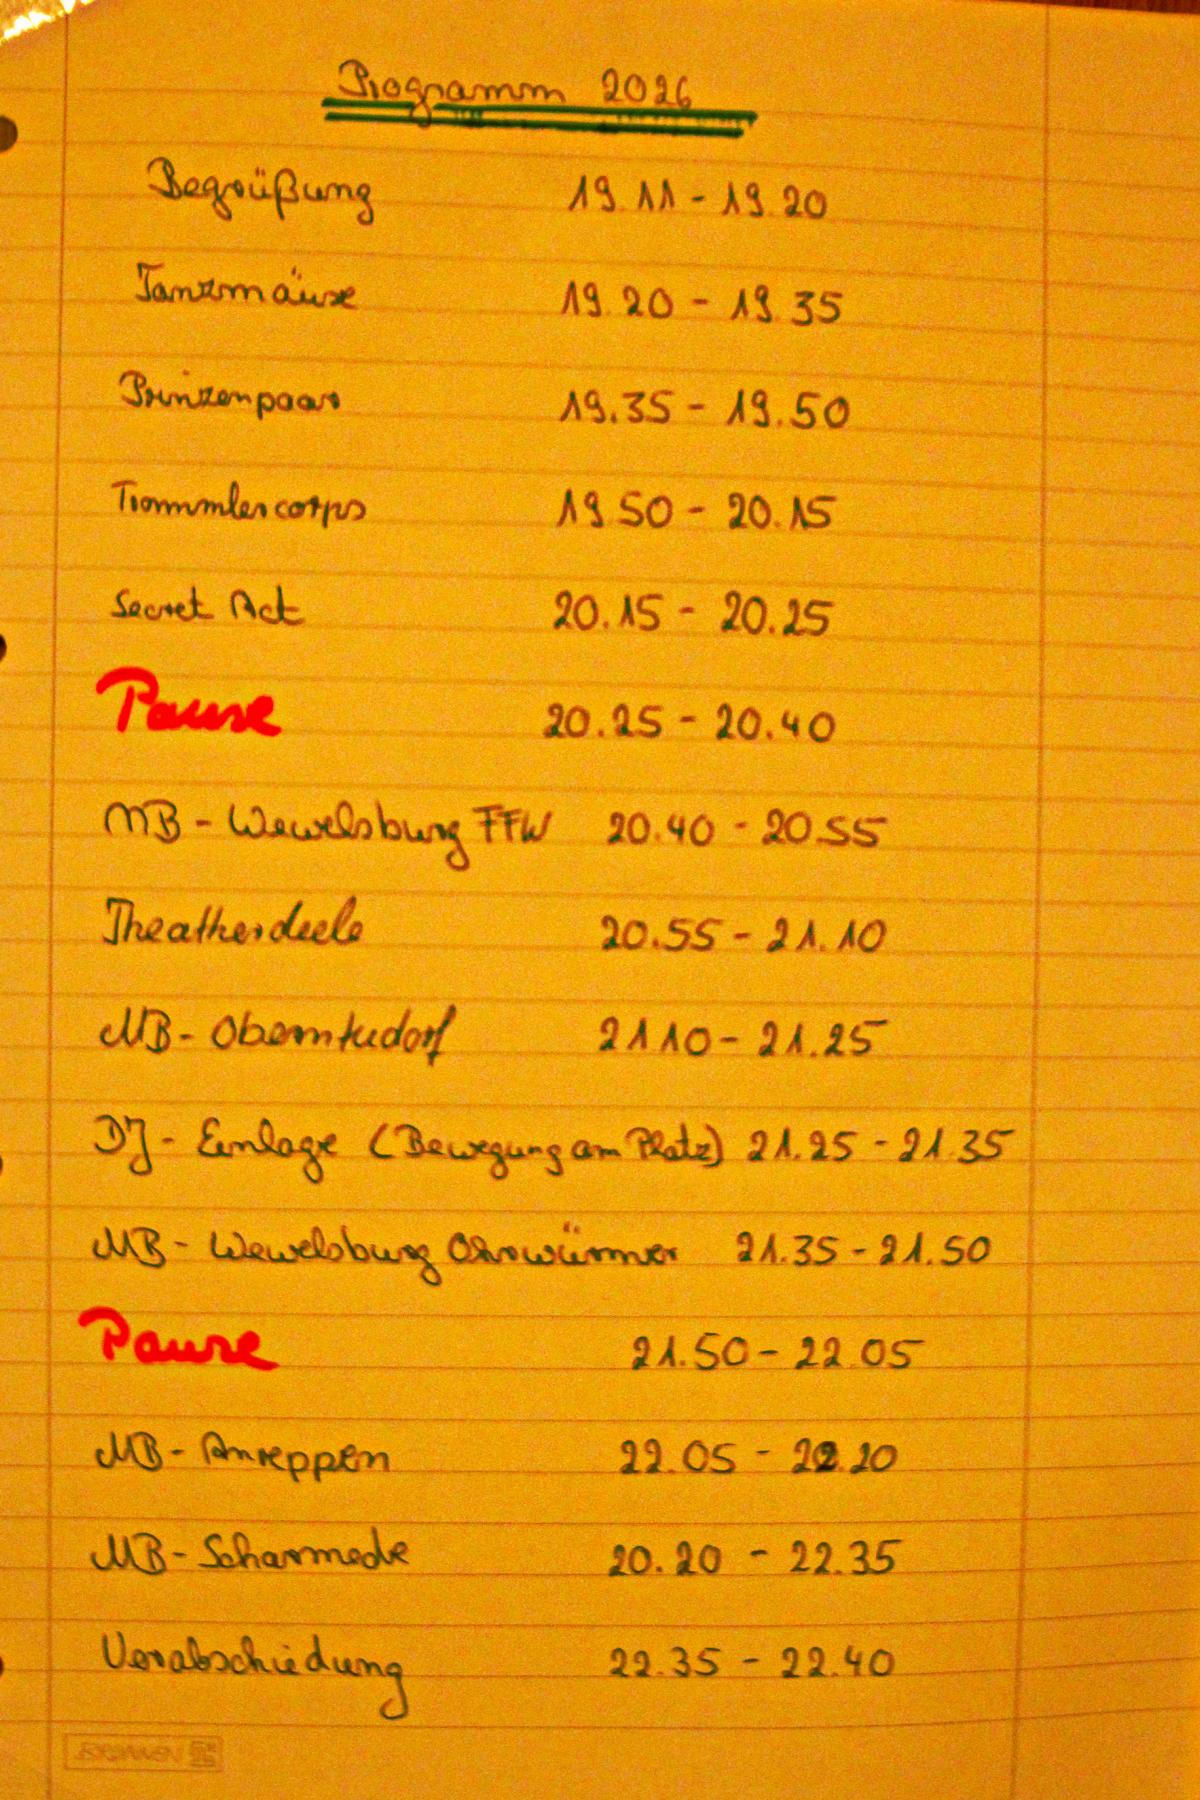 Programm 2026
Begrüßung 19.11 - 19.20
Tanzmäuse 19.20 - 19.35
Prinzenpaar 19.35 - 19.50
Trommlercorps 19.50 - 20.15
Secret Act 20.15 - 20.25
Pause 20.25 - 20.40
MB - Wewelsburg FFW 20.40 - 20.55
Theatherdeele 20.55 - 21.10
MB - Oberntudorf 21.10 - 21.25
DJ - Einlage (Bewegung am Platz) 21.25 - 21.35
MB - Wewelsburg Ohrwürmer 21.35 - 21.50
Pause 21.50 - 22.05
MB - Anreppen 22.05 - 22.20
MB - Scharmede 20.20 - 22.35
Verabschiedung 22.35 - 22.40
BRUNNEN